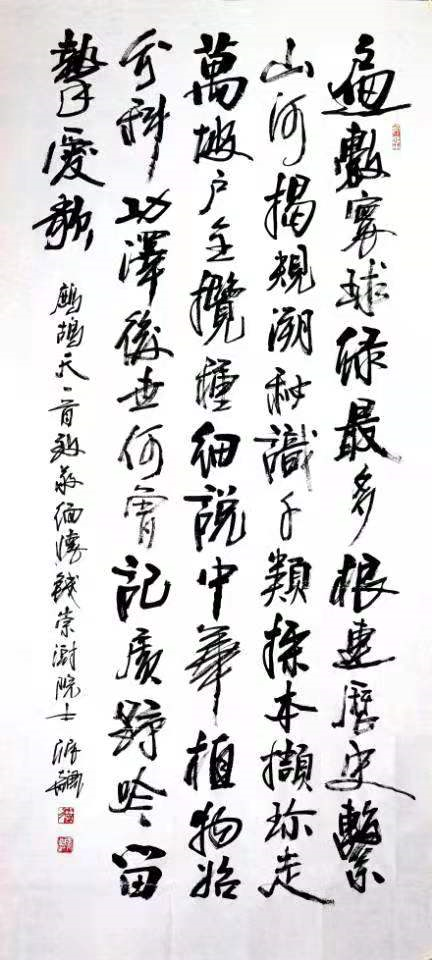 遍數寰球綠最多根連歷史繫
山河揭規溯秘識千類採本擷珍走
萬坡户全攬種細說中華植物始
分科功澤後世何曾記廣野吟留
摯愛歌
鷓鴣天一首致敬緬懷錢崇澍院士